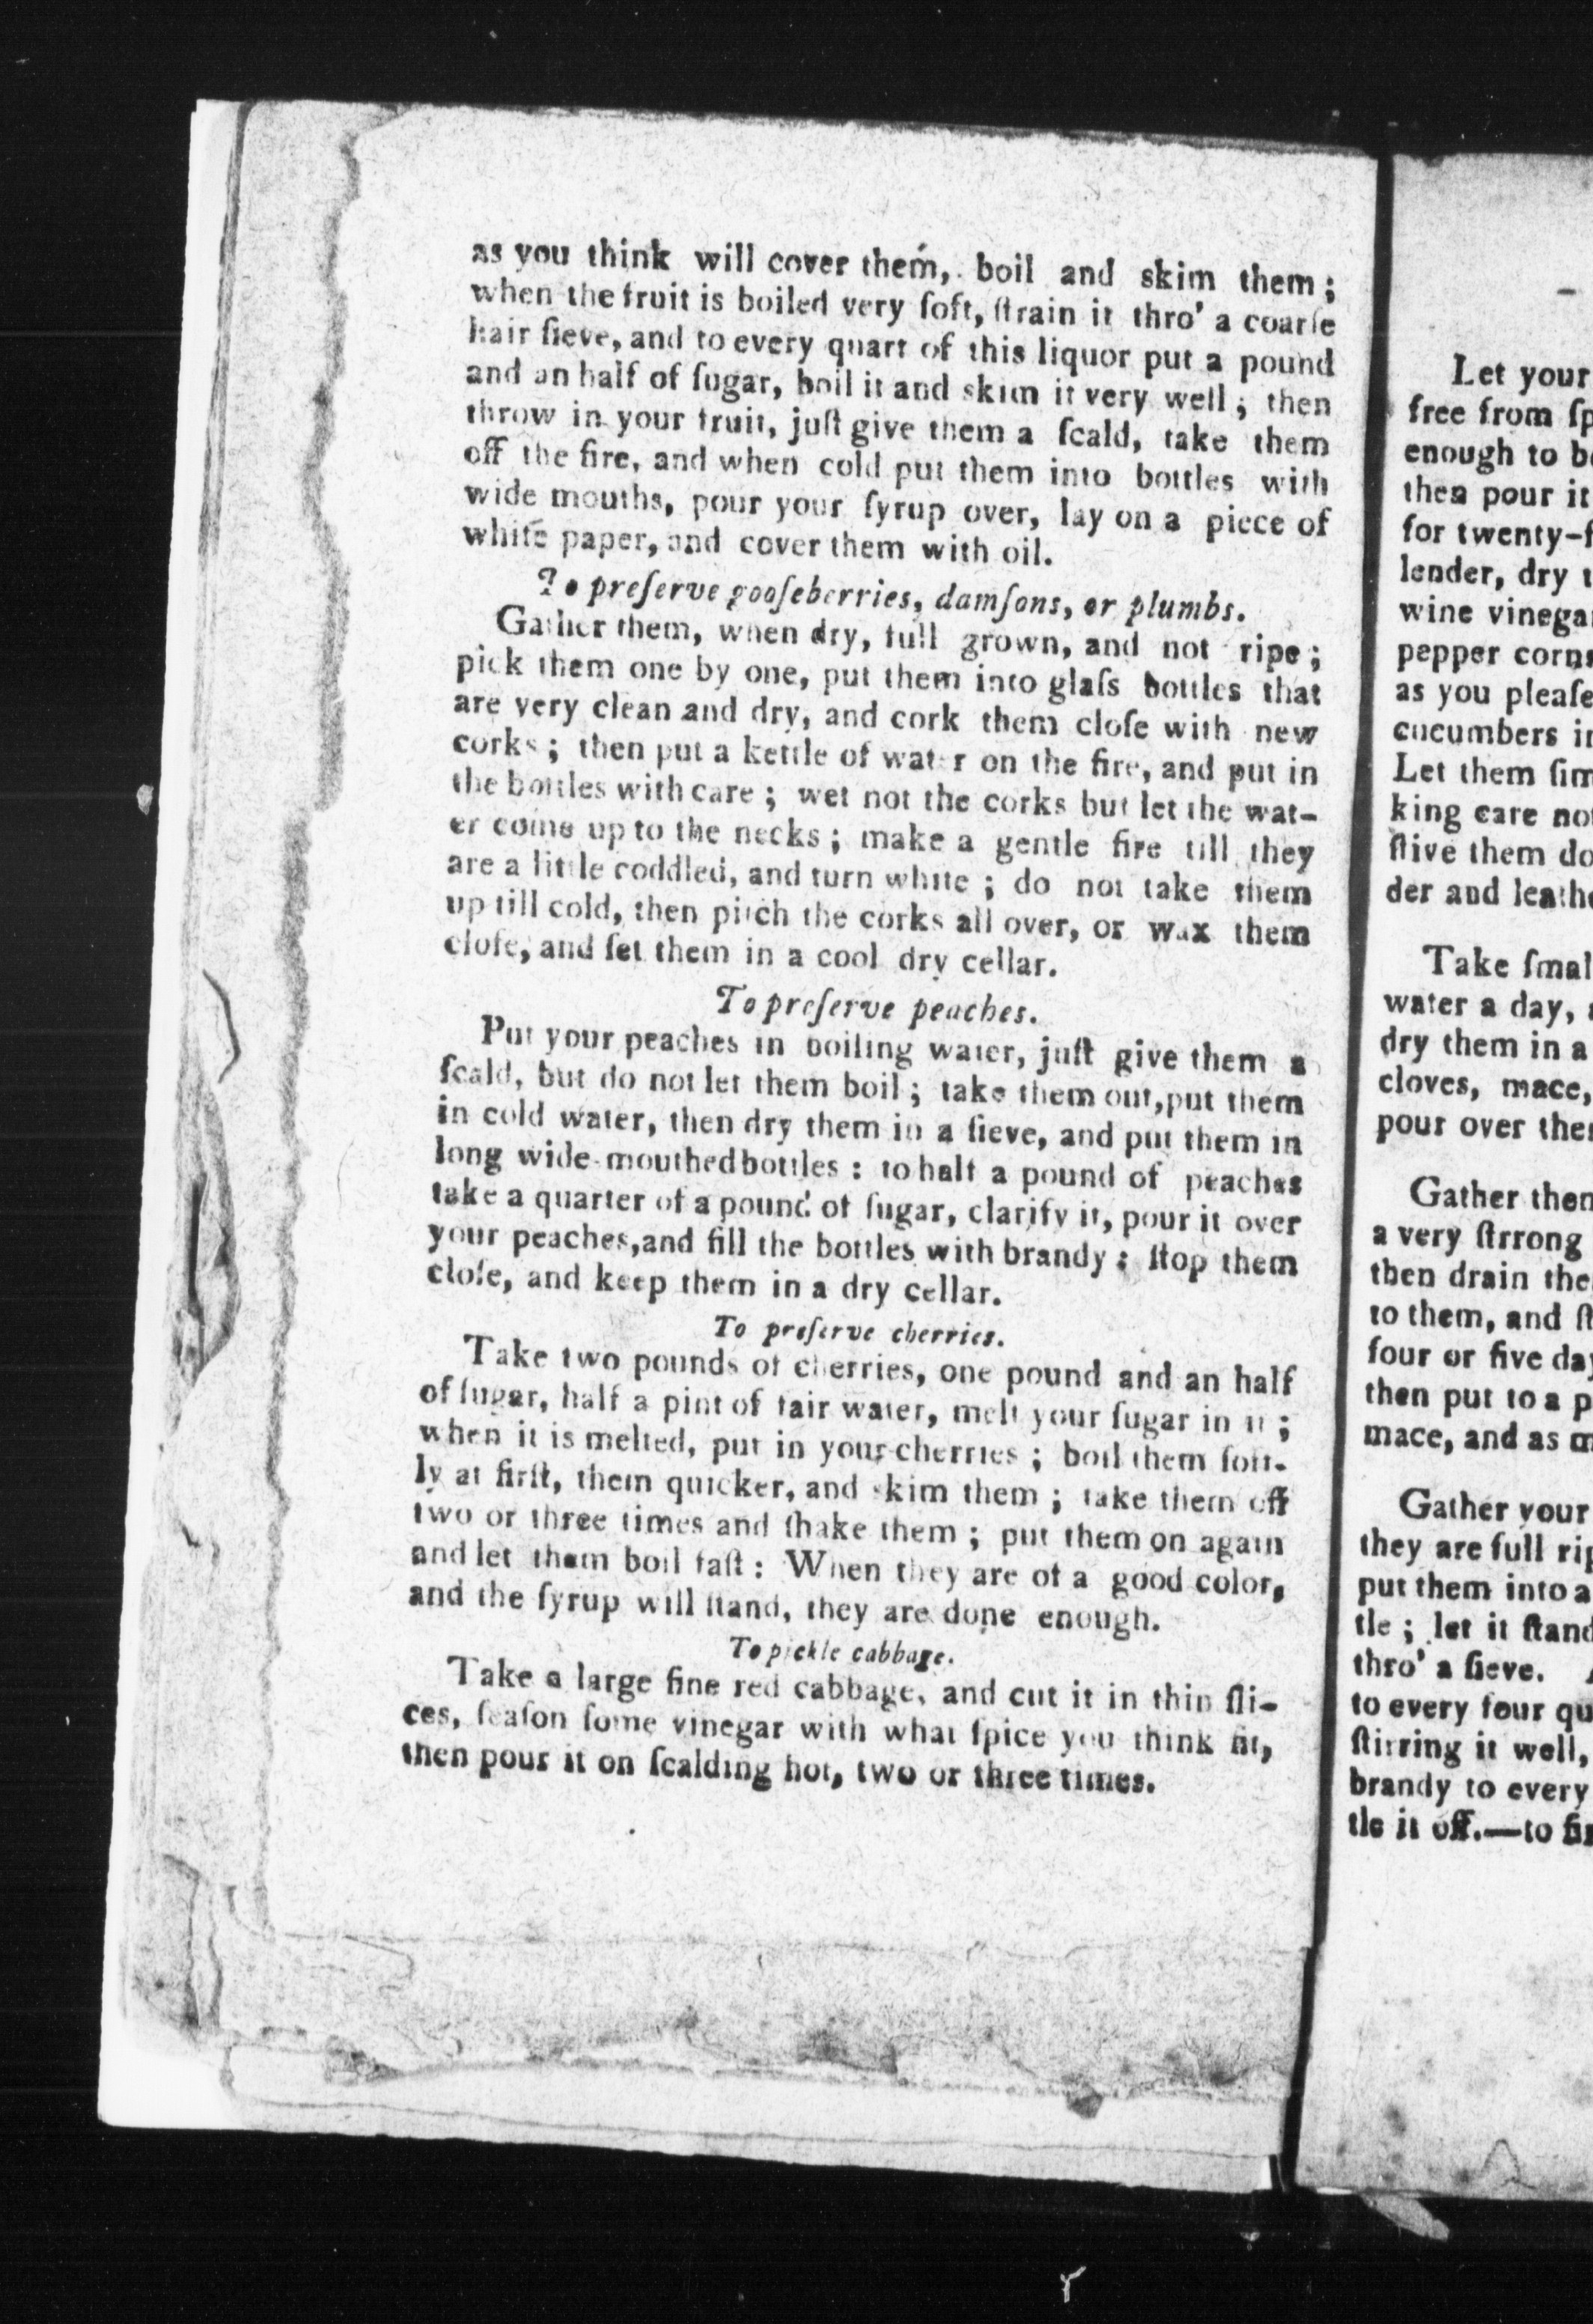 as you think will cover them, boil and skim them ;
when the fruit is boiled very ſoft, ſtrain it thro' a coarſe
hair ſieve, and to every quart of this liquor put a pound
and an half of ſugar, boil it and skim it very well ; then
throw in your fruit, juſt give them a ſcald, take them
off the fire, and when cold put them into bottles with
wide mouths, pour your ſyrup over, lay on a piece of
white paper, and cover them with oil.
To preſerve gooſeberries, damſons, or plumbs.
Gather them, when dry, full grown, and not ripe ;
pick them one by one, put them into glaſs bottles that
are very clean and dry, and cork them cloſe with new
corks ; then put a kettle of water on the fire, and put in
the bottles with care ; wet not the corks but let the wat-
er come up to the necks ; make a gentle fire till they
are a little coddled, and turn white ; do not take them
up till cold, then pitch the corks all over, or wax them
cloſe, and ſet them in a cool dry cellar.
To preſerve peaches.
Put your peaches in boiling water, juſt give them a
ſcald, but do not let them boil ; take them out, put them
in cold water, then dry them in a ſieve, and put them in
long wide-mouthed bottles : to half a pound of peaches
take a quarter of a pound of ſugar, clarify it, pour it over
your peaches, and fill the bottles with brandy ; ſtop them
cloſe, and keep them in a dry cellar.
To preſerve cherries.
Take two pounds of cherries, one pound and an half
of ſugar, half a pint of fair water, melt your ſugar in it ;
when it is melted, put in your cherries ; boil them ſoft-
ly at firſt, them quicker, and skim them ; take them off
two or three times and ſhake them ; put them on again
and let them boil faſt : When they are of a good color,
and the ſyrup will ſtand, they are done enough.
To pickle cabbage.
Take a large fine red cabbage, and cut it in thin ſli-
ces, ſeaſon ſome vinegar with what ſpice you think fit,
then pour it on ſcalding hot, two or three times.
Let your
free from
enough to
then pour it
for
lender, dry
wine
pepper corns
as you pleaſe
cucumbers
Let them
king care not
ſtive them
der and
Take
water a day,
dry them in a
cloves, mace,
pour over
Gather
a very ſtrrong
then drain
to them, and
four or five
then put to a
mace, and as
Gather your
they are full
put them into a
tle ; let it
thro' a ſieve.
to every four
ſtirring it well,
brandy to every
tle it off.—to